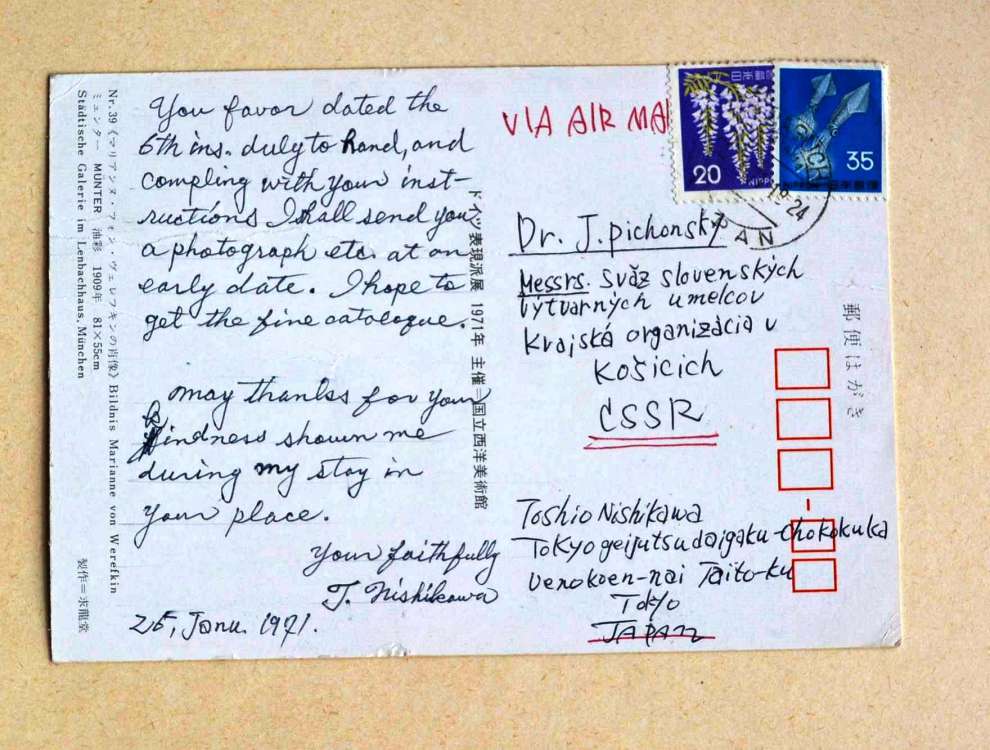 You favor dated the
6th ins. duly to hand, and
compling with your inst-
ructions I shall send you
a photograph etc. at an
early date. I hope to
get the fine catalogue.
may thanks for your
kindness shown me
during my stay in
your place.
your faithfully
T. Nishikawa
25, Janu. 1971.
Nr. 39《マリアンヌ・フォン・ヴェレフキンの肖像》Bildnis Marianne von Werefkin
ミュンター MÜNTER 油彩 1909年 81×55cm
Städtische Galerie im Lenbachhaus, München
製作＝求龍堂
ドイツ表現派展 1971年 主催＝国立西洋美術館
VIA AIR MA
20
NIPPON
35
日本郵便
19-24
AN
Dr. J. pichonský
Messrs. svăz slovenských
výtvarných umelcov
Krajská organizácia v
Košicich
CSSR
郵便はがき
Toshio Nishikawa
Tokyogeijutsudaigaku-Chokokuka
Uenokoen-nai Taito-ku
Tokyo
JAPAN